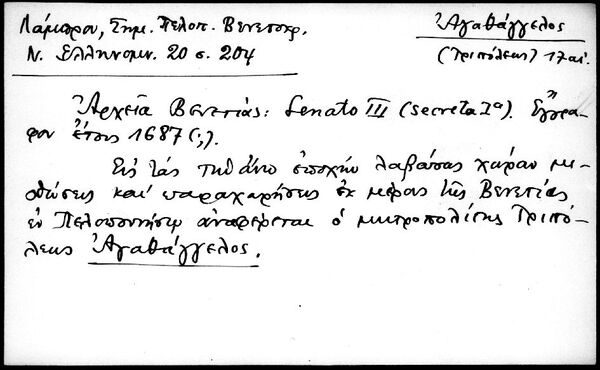 Λάμπρου, Σημ. Πελοπ. Βενετοκρ.
Ν. Ελληνομν. 20 σ. 204
Ἀγαθάγγελος
(Τριπόλεως) 17 αἰ.
Ἀρχεῖα Βενετίας: Senato III (secreta Iª). Ἔγγρα-
φον ἔτους 1687 (;).
Εἰς τὰς τὴν ἄνω ἐποχὴν λαβούσας χώραν μι-
σθώσεις καὶ παραχωρήσεις ἐκ μέρους τῆς Βενετίας
ἐν Πελοποννήσῳ ἀναφέρεται ὁ μητροπολίτης Τριπό-
λεως Ἀγαθάγγελος.